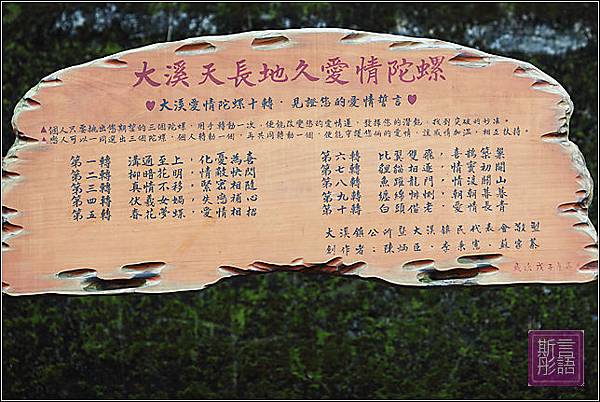 大溪天長地久愛情陀螺
♥大溪愛情陀螺十轉，見證您的愛情誓言♥
▲個人只要挑出您期望的三個陀螺，用手轉動一次，便能改變您的愛情運，發揮您的潛能，找到突破的妙法。
▲戀人可以一同選出三個陀螺，個人轉動一個，再共同轉動一個，便能守護您倆的愛情，讓感情加溫，相互扶持。
第一轉 溝通至上，化憂為喜
第二轉 柳暗花明，情敵快閃
第三轉 真情不移，緊密相隨
第四轉 伏羲女媧，失戀補心
第五轉 春花夢蝶，愛情相招
第六轉 比翼雙飛，喜鵲築巢
第七轉 貍貓相逐，情竇初開
第八轉 魚躍龍門，情波關山
第九轉 纏綿悱惻，朝朝暮暮
第十轉 白頭偕老，愛情長青
大溪鎮公所暨大溪鎮民代表會敬製
創作者：陳炳臣、李秉憲、蘇宗基
歲次戊子
斯彤言語